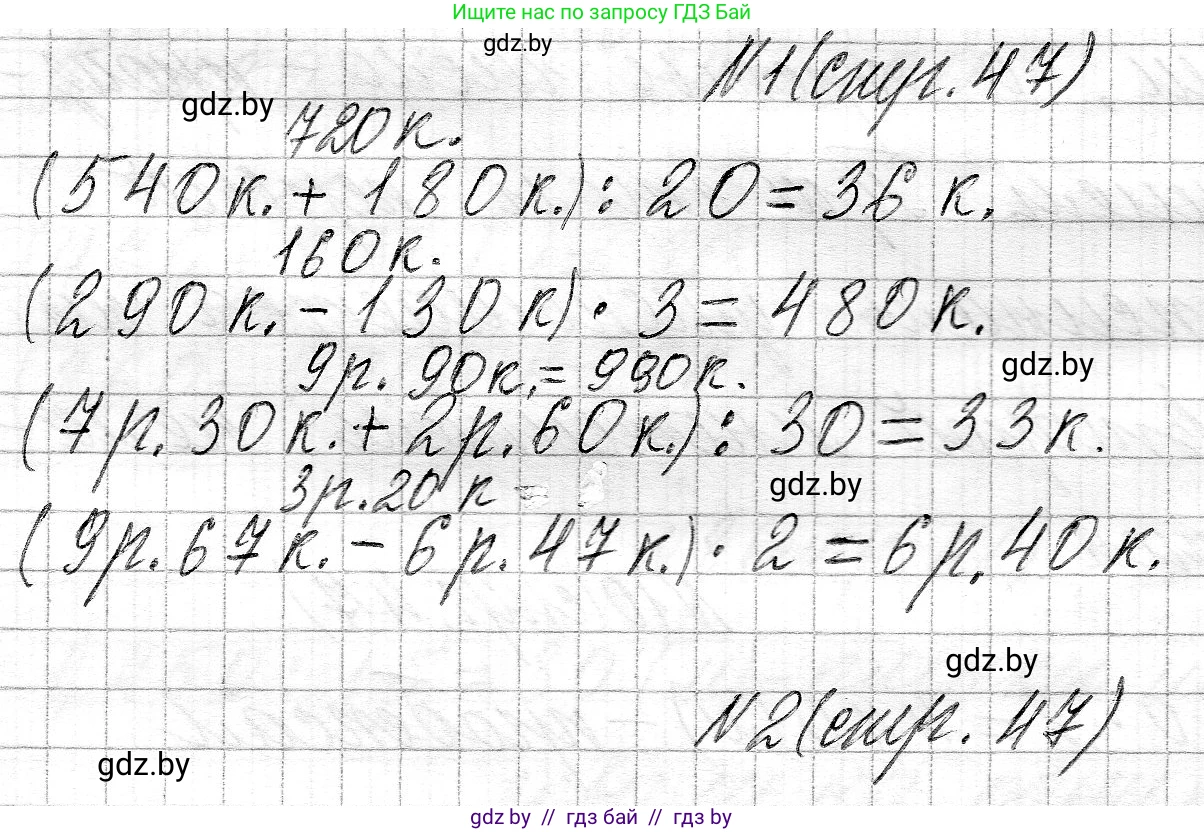 Ищите нас по запросу ГДЗ Бай
gdz.by
N1(стр. 47)
gdz.by
720к.
(540к. + 180к.) : 20 = 36 к.
160к.
(290к. - 130к) · 3 = 480к.
gdz.by
9р. 90к. = 990к.
(7р. 30к. + 2р. 60к.) : 30 = 33к.
3р. 20 к =
gdz.by
(9р. 67к. - 6р. 47к.) · 2 = 6р. 40к.
gdz.by
N2(стр. 47)
gdz.by
gdz.by // гдз бай // gdz.by